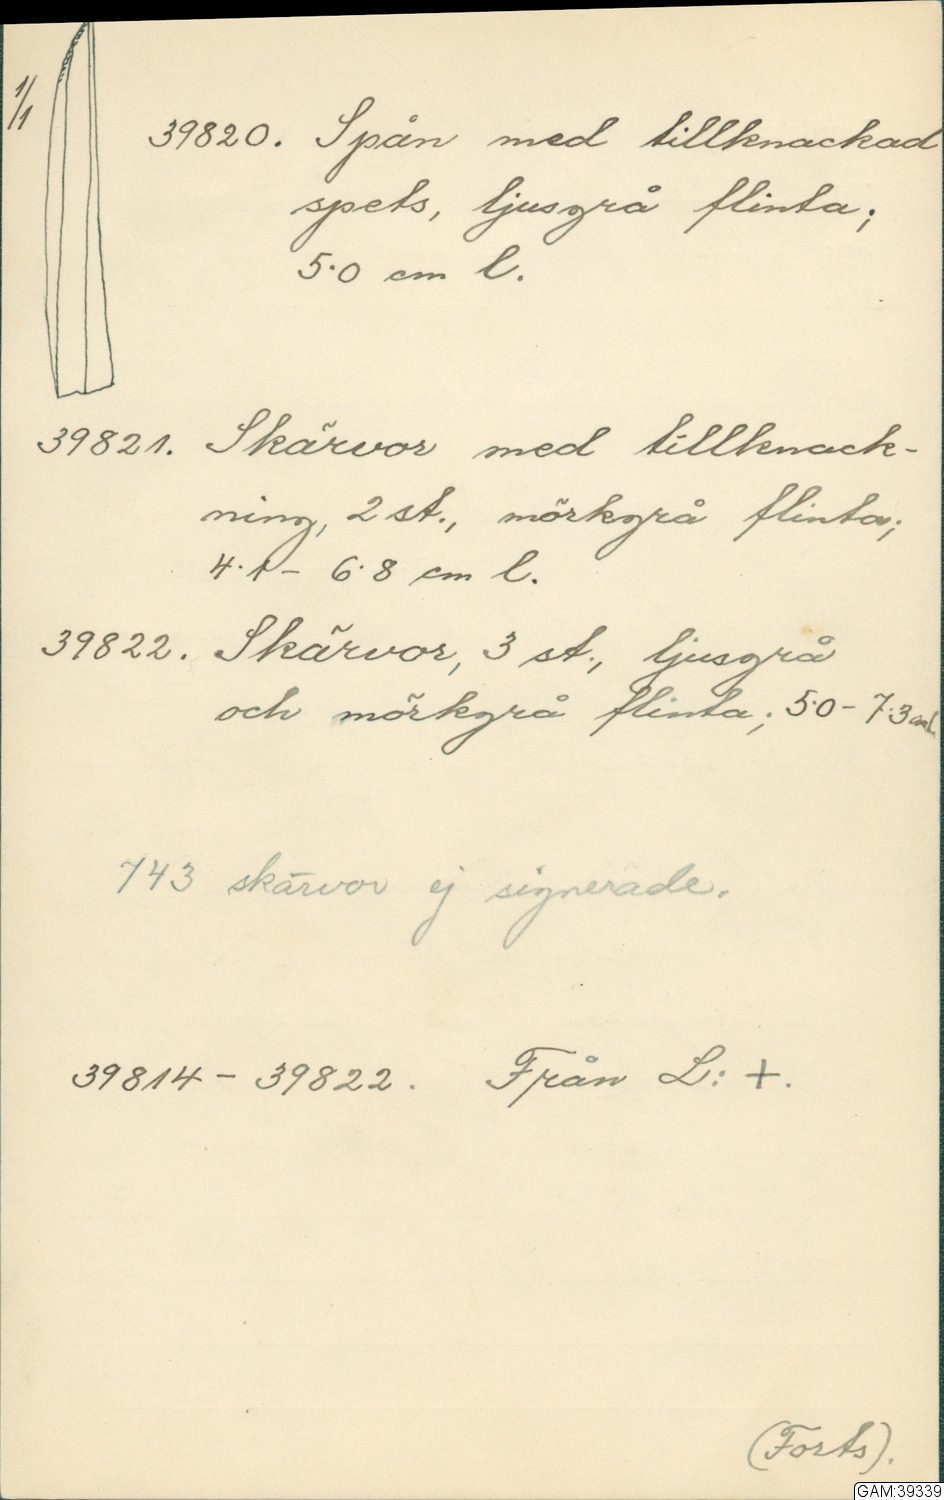 1/1
39820. Spån med tillknackad
spets, ljusgrå flinta;
5·0 cm l.
39821. Skärvor med tillknack-
ning, 2 st., mörkgrå flinta;
4·1 – 6·8 cm l.
39822. Skärvor, 3 st., ljusgrå
och mörkgrå flinta; 5·0 – 7·3 cm l.
743 skärvor ej signerade.
39814 – 39822. Från L: +.
(Forts).
GAM:39339